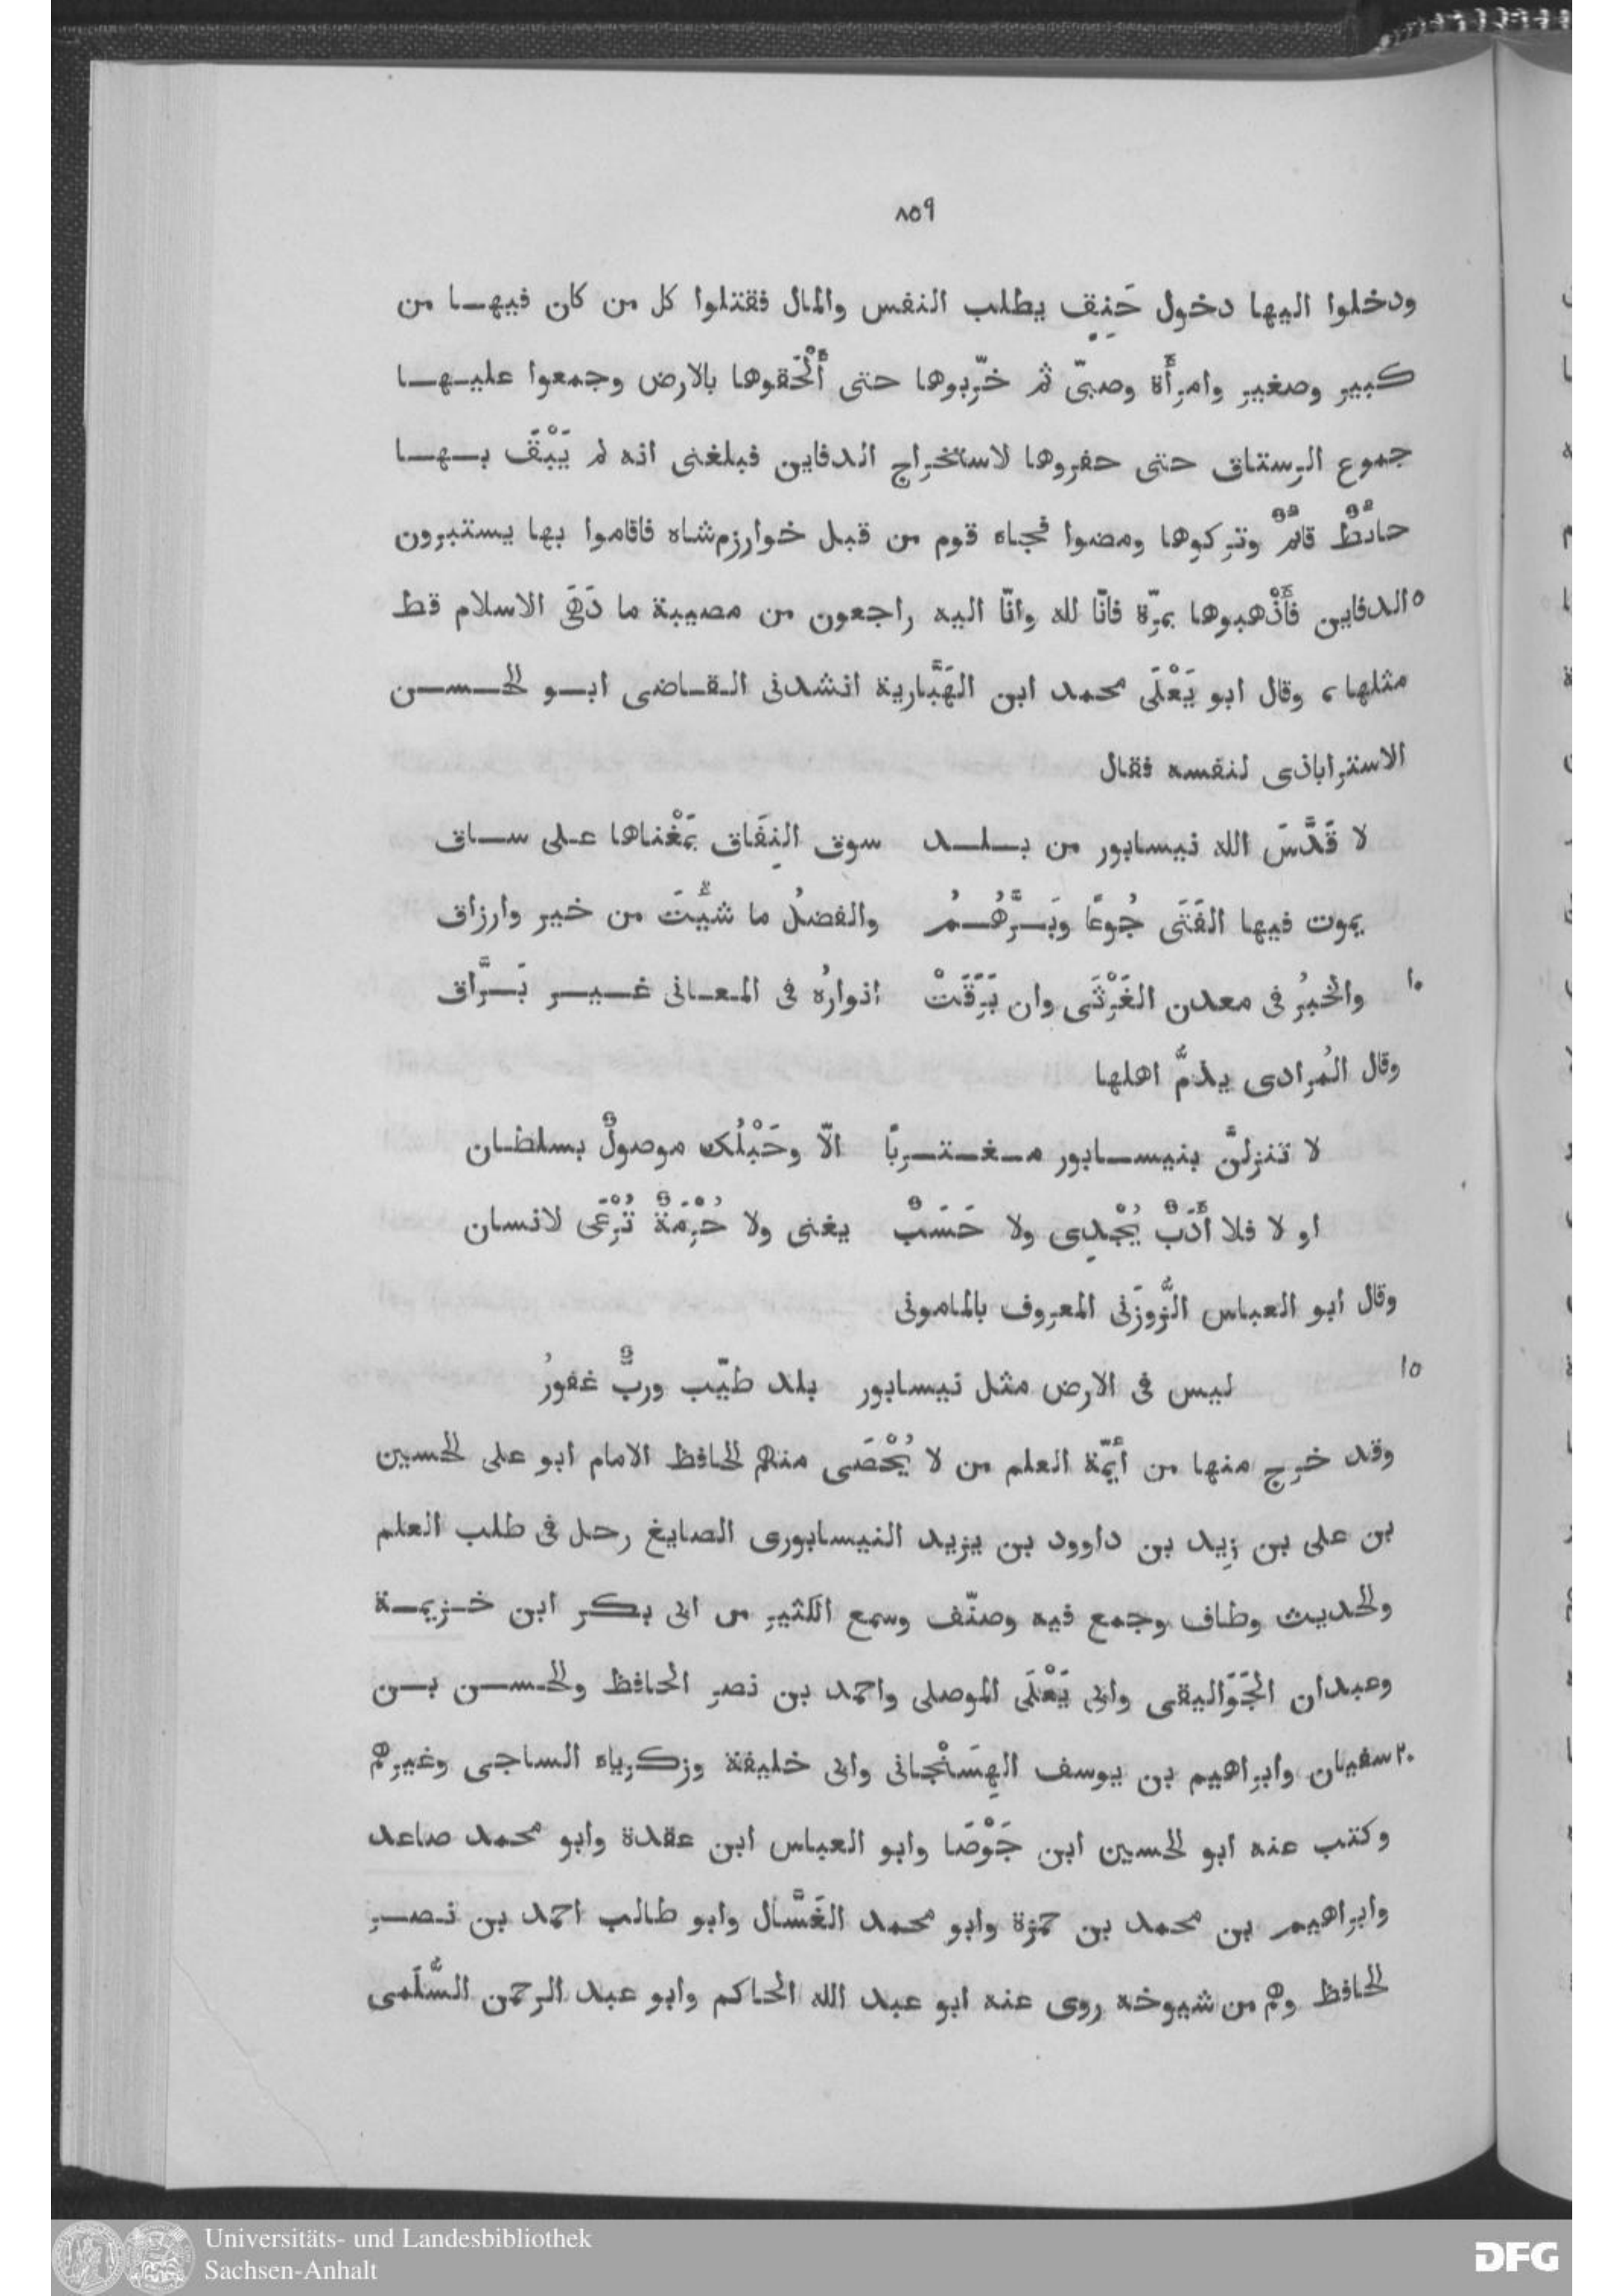 ٨٥٩
ودخلوا اليها دخول حَنِقٍ يطلب النفس والمال فقتلوا كل من كان فيهـا من
كبير وصغير وامرأة وصبىّ ثم خرّبوها حتى أَلْحَقوها بالارض وجمعوا عليـهـا
جموع الرستاق حتى حفروها لاستخراج الدفاين فبلغنى انه لم يَبْقَ بـهـا
حائطٌ قائمٌ وتركوها ومضوا فجاء قوم من قبل خوارزم شاه فاقاموا بها يستبرون
٥ الدفاين فأَذْهبوها بمرّة فانّا لله وانّا اليه راجعون من مصيبة ما دَهَى الاسلام قط
مثلها، وقال ابو يَعْلَى محمد ابن الهَبَّارية انشدنى الـقـاضى ابـو الحـسـن
الاستراباذى لنفسه فقال
لا قَدَّسَ الله نيسابور من بـلـد سوق النِفَاق بمَغْناها عـلى سـاق
يموت فيها الفَتَى جُوعًا وبَـرُّهُـمُ والفضلُ ما شئْتَ من خير وارزاق
١٠ والخبرُ فى معدن الغَرْثَى وان بَرَقَتْ انوارُه فى المـعـانى غـيـر بَـرَّاق
وقال المُرادى يذمُّ اهلها
لا تنزلنَّ بنيسـابور مـغـتـربًا الّا وحَبْلُك موصولٌ بسلطـان
او لا فلا أَدَبٌ يُجْدِى ولا حَسَبٌ يغنى ولا حُرْمَةٌ تُرْعَى لانسان
وقال ابو العباس الزُّوزَنى المعروف بالمامونى
١٥ ليس فى الارض مثل نيسابور بلد طيّب وربٌّ غفورُ
وقد خرج منها من أَيمّة العلم من لا يُحْصَى منهم الحافظ الامام ابو على الحسين
بن على بن زيد بن داوود بن يزيد النيسابورى الصايغ رحل فى طلب العلم
والحديث وطاف وجمع فيه وصنّف وسمع الكثير من ابى بكر ابن خـزيمـة
وعبدان الجَوَاليقى وابى يَعْلَى الموصلى واحمد بن نصر الحافظ والحـسـن بـن
٢٠ سفيان وابراهيم بن يوسف الهِسَنْجانى وابى خليفة وزكرياء الساجى وغيرهم
وكتب عنه ابو الحسين ابن جَوْصَا وابو العباس ابن عقدة وابو محمد صاعد
وابراهيم بن محمد بن حمزة وابو محمد الغَسَّال وابو طالب احمد بن نـصـر
الحافظ وهم من شيوخه روى عنه ابو عبد الله الحاكم وابو عبد الرحمن السُّلَمى
Universitäts- und Landesbibliothek
Sachsen-Anhalt
DFG